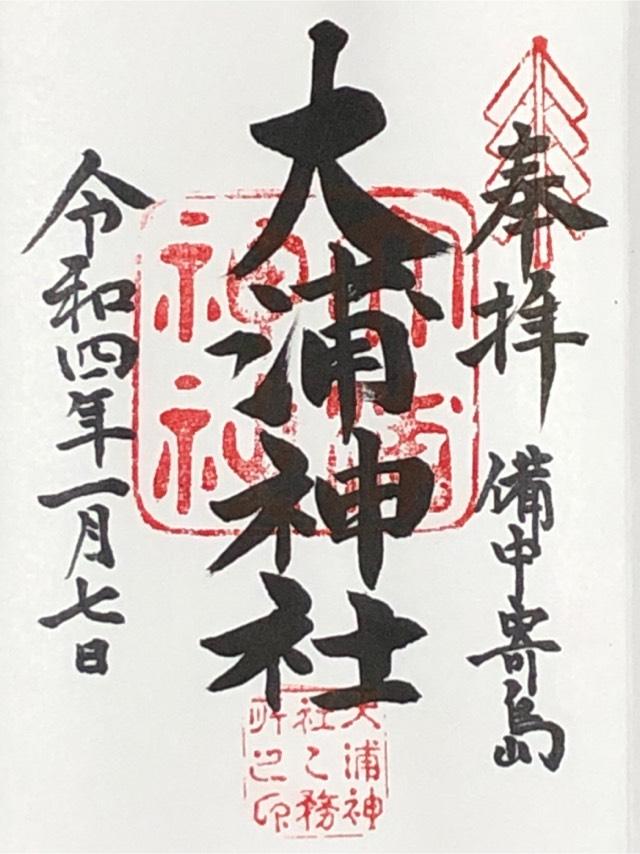 奉拝
備中寄島
大浦神社
令和四年一月七日
大浦神社
大浦神
社之務
所之印